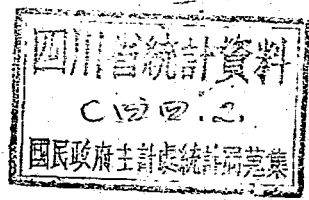 四川省統計資料
C四四.2.
國民政府主計處統計局蒐集